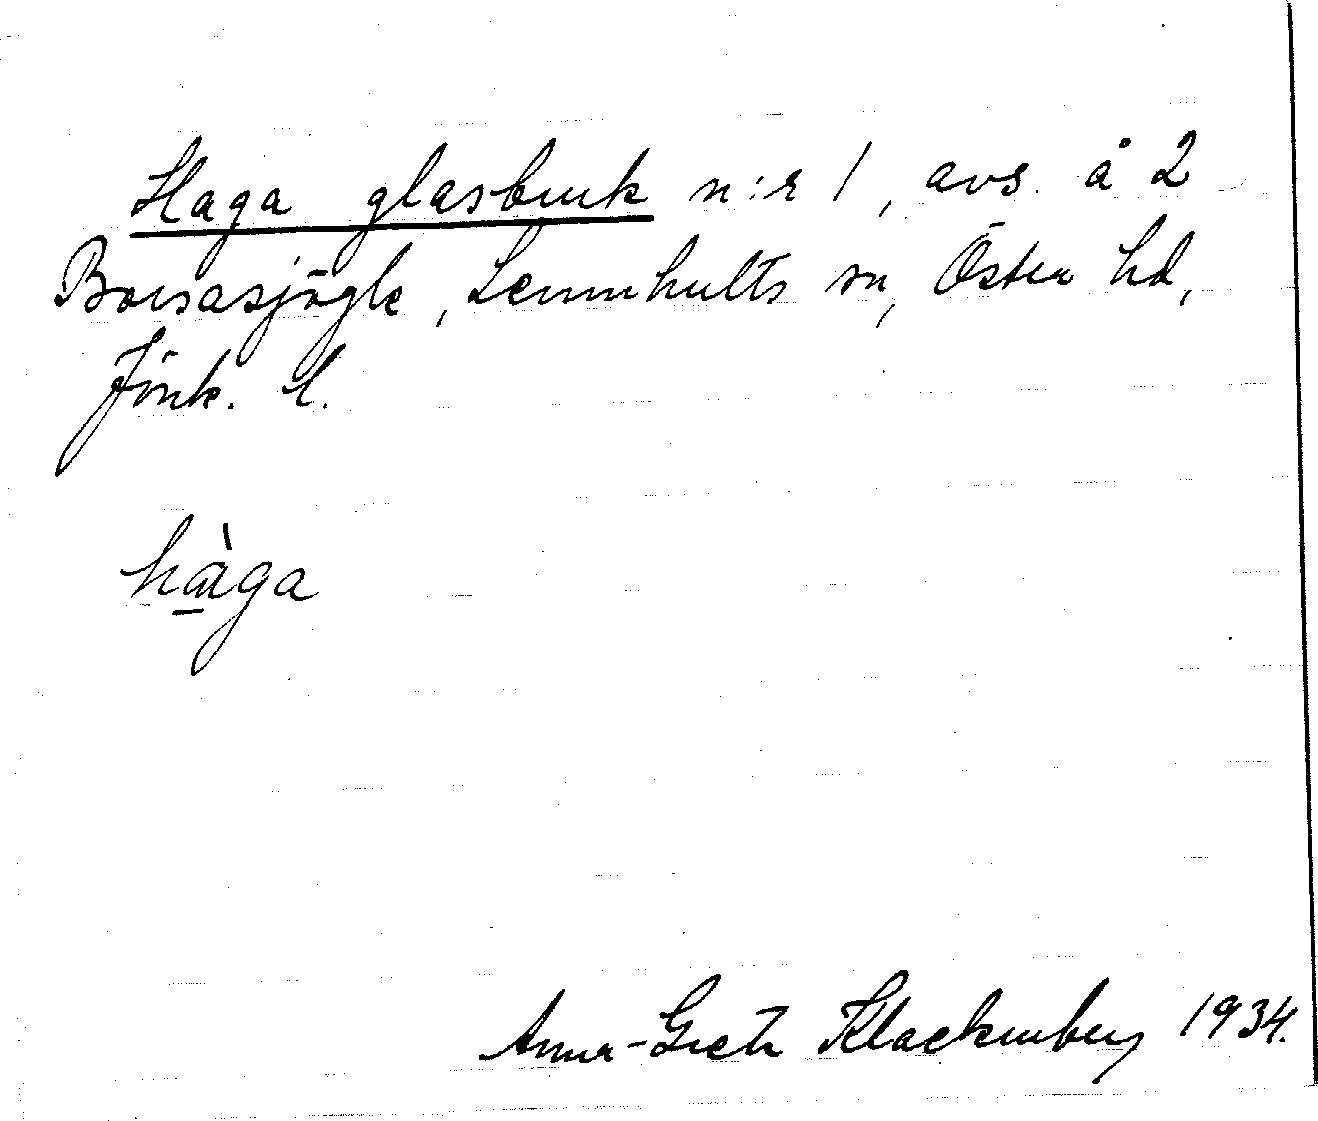 Haga glasbruk n:r 1, avs. å 2
Borsasjögle, Lemnhults sn, Östra hd,
Jönk. l.
hàga
Anna-Greta Klackenberg 1934.